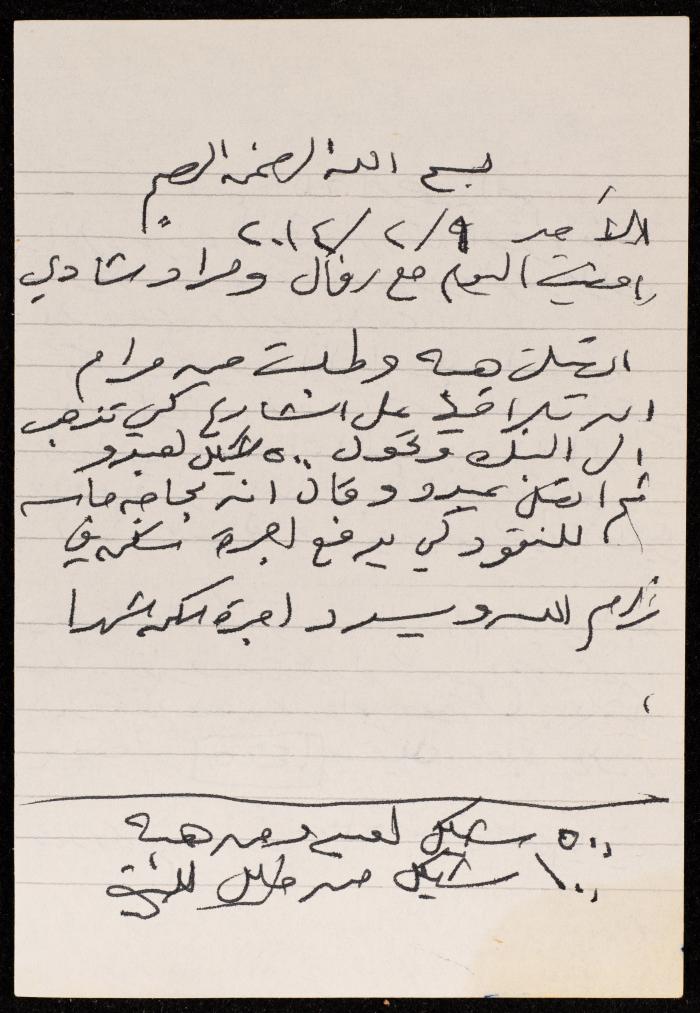 بسم الله الرحمن الرحيم
الأحد ٢٠١٤/٢/٩
اليوم مع رفال ومراد وشادي
اتصلت هبه وطلبت من مرام
ان تلاقيها على الشارع كي تذهب
الى البنك وتحول ٥٠٠ شيكل لعبدو
ثم اتصل عبدو وقال انه بحاجه ماسه
للنقود كي يدفع اجرة
رام الله وسيدد اجرة شهرا
٥٠٠ شيكل لعبدو من هبه
١٠٠ شيكل من خليل